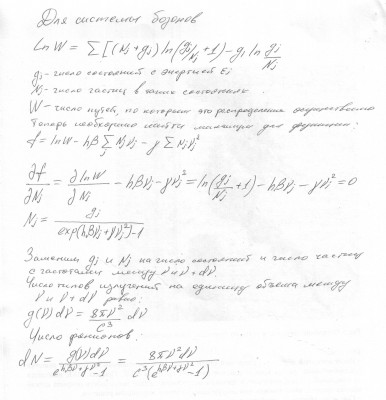 Для системы бозонов
ln W = Σ [(Nj + gj) ln (gj/Nj + 1) - gj ln gj/Nj
gj - число состояний с энергией Ej
Nj - число частиц в таких состояниях.
W - число путей, по которым это распределение осуществимо
Теперь необходимо найти максимум для функции:
f = ln W - hβ Σ Nj νj - γ Σ Nj νj²
∂f/∂Nj = ∂ ln W/∂Nj - hβνj - γνj² = ln(gj/Nj + 1) - hβνj - γνj² = 0
Nj = gj/exp(hβνj + γνj²) - 1
Заменим gj и Nj на число состояний и число частиц
с частотами между ν и ν + dν.
Число типов излучений на единицу объема между
ν и ν + dν равно:
g(ν) dν = 8πν²/c³ dν
Число фотонов:
dN = g(ν)dν/e^(hβν+γν²) - 1 = 8πν²dν/c³(e^(hβν+γν²) - 1)